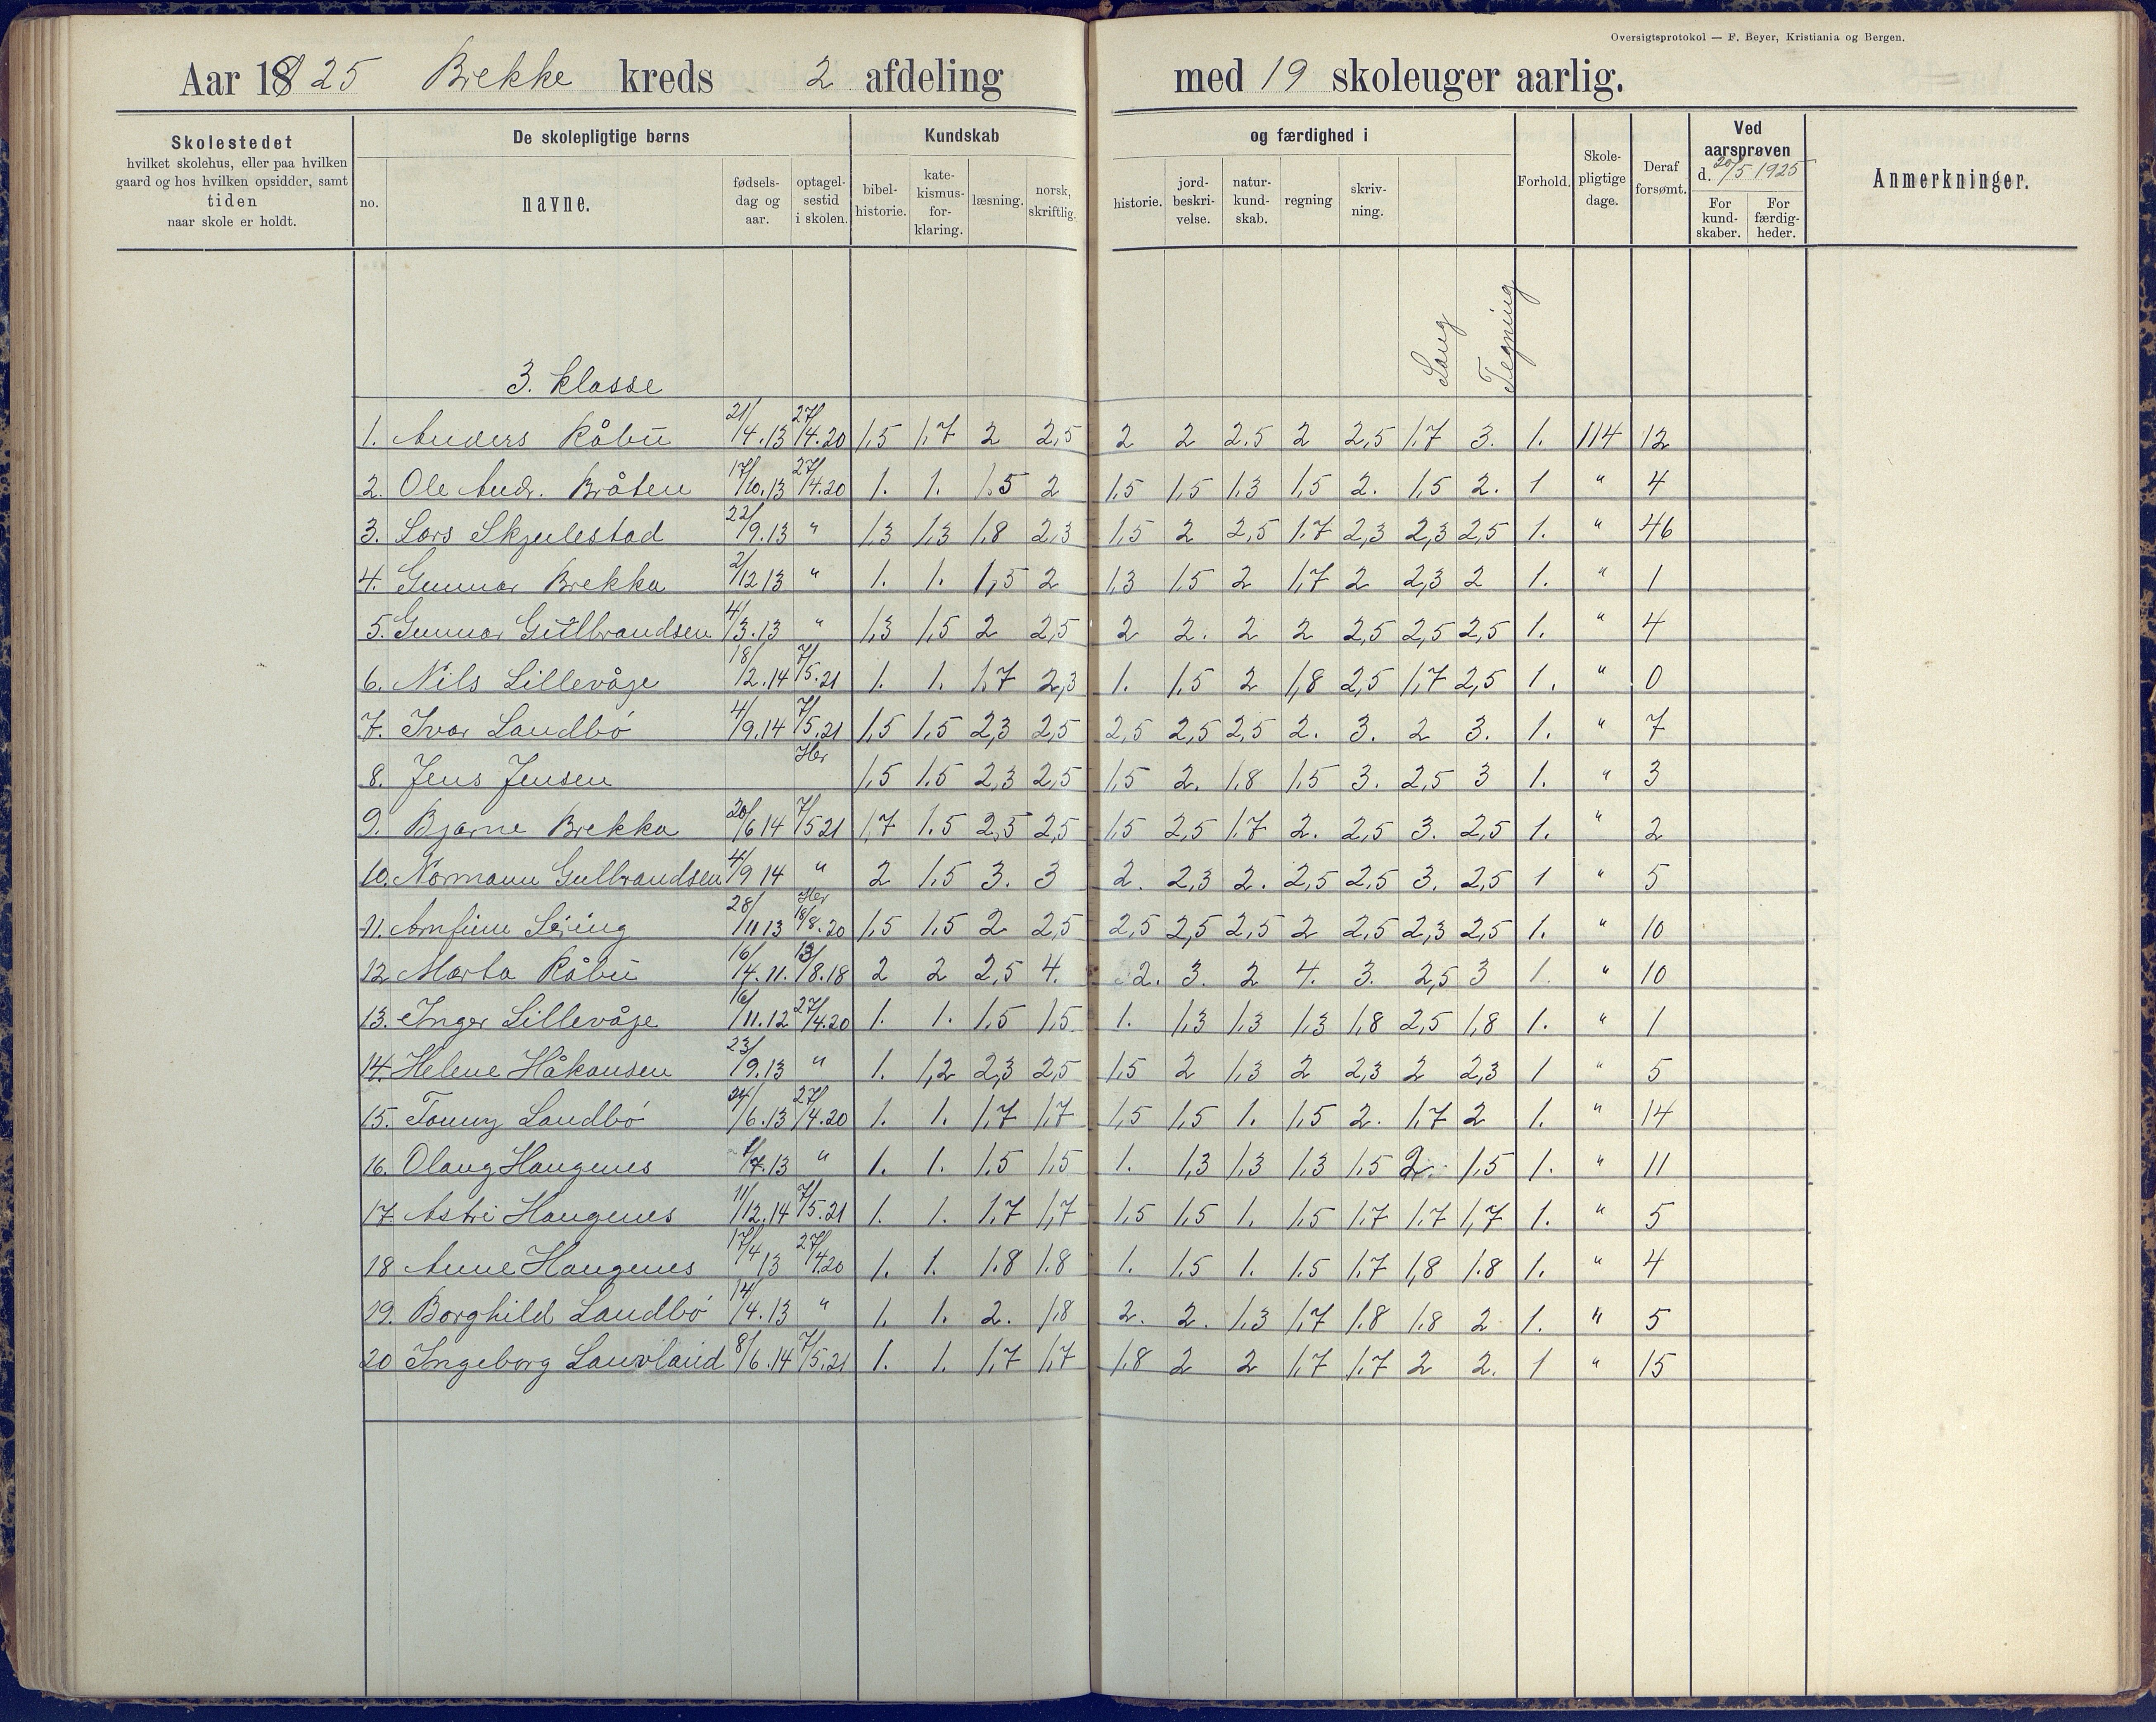 Oversigtsprotokol — F. Beyer, Kristiania og Bergen.
Aar 1925 Brekke kreds 2 afdeling med 19 skoleuger aarlig.
Skolestedet hvilket skolehus, eller paa hvilken gaard og hos hvilken opsidder, samt tiden naar skole er holdt.
De skolepligtige børns
no. navne. fødselsdag og aar. optagelsestid i skolen.
Kundskab og færdighed i
bibelhistorie. katekismusforklaring. læsning. norsk, skriftlig. historie. jordbeskrivelse. naturkundskab. regning skrivning. Sang Tegning
Forhold. Skolepligtige dage. Deraf forsømt.
Ved aarsprøven d. 20/5 1925
For kundskaber. For færdigheder.
Anmerkninger.
3. klasse
1. Anders Råbu 21/4.13 27/4.20 1,5 1,7 2 2,5 2 2 2,5 2 2,5 1,7 3. 1. 114 12
2. Ole Andr. Bråten 17/10.13 27/4.20 1. 1. 1,5 2 1,5 1,5 1,3 1,5 2. 1,5 2. 1 " 4
3. Lars Skjulestad 22/9.13 " 1,3 1,3 1,8 2,3 1,5 2 2,5 1,7 2,3 2,3 2,5 1. " 46
4. Gunnar Brekka 2/12 13 " 1. 1. 1,5 2 1,3 1,5 2 1,7 2 2,3 2 1. " 1
5. Gunnar Gulbrandsen 4/3.13 " 1,3 1,5 2 2,5 2 2. 2 2 2,5 2,5 2,5 1. " 4
6. Nils Lillevåje 18/12.14 7/5.21 1. 1. 1,7 2,3 1. 1,5 2 1,8 2,5 1,7 2,5 1. " 0
7. Ivar Landbö 4/9.14 7/5.21 1,5 1,5 2,3 2,5 2,5 2,5 2,5 2. 3. 2 3. 1. " 7
8. Jens Jensen Her 1,5 1,5 2,3 2,5 1,5 2. 1,8 1,5 3. 2,5 3 1. " 3
9. Bjarne Brekka 20/6 14 7/5 21 1,7 1,5 2,5 2,5 1,5 2,5 1,7 2. 2,5 3. 2,5 1. " 2
10. Normann Gulbrandsen 4/9 14 " 2 1,5 3. 3 2. 2,3 2. 2,5 2,5 3. 2,5 1 " 5
11. Arnfinn 28/11 13 Her 18/8.20 1,5 1,5 2 2,5 2,5 2,5 2,5 2 2,5 2,3 2,5 1. " 10
12 Marta Råbu 16/4.11. 13/8.18 2 2 2,5 4. 2. 3. 2 4. 3. 2,5 3 1. " 10
13. Inger Lillevåje 16/11.12 27/4.20 1. 1. 1,5 1,5 1. 1,3 1,3 1,3 1,8 2,5 1,8 1. " 1
14. Helene Håkonsen 23/9.13 " 1. 1,2 2,3 2,5 1,5 2 1,3 2 2,3 2 2,3 1 " 5
15. Tonny Landbö 24/6.13 27/4.20 1. 1. 1,7 1,7 1,5 1,5 1. 1,5 2. 1,7 2 1. " 14
16. Olaug Haugenes 7.13 " 1. 1. 1,5 1,5 1. 1,3 1,3 1,3 1,5 2. 1,5 1. " 11
17. Astri Haugenes 11/12.14 7/5.21 1. 1. 1,7 1,7 1,5 1,5 1. 1,5 1,7 1,7 1,7 1. " 5
18 Anne Haugenes 17/4 13 27/4.20 1. 1. 1.8 1.8 1. 1,5 1. 1,5 1,7 1,8 1.8 1. " 4
19. Borghild Landbö 14/4.13 " 1. 1. 2. 1,8 2. 2. 1,3 1,7 1,8 1.8 2 1. " 5
20 Ingeborg Lauvland 8/6.14 7/5.21 1. 1. 1,7 1,7 1,8 2 2 1,7 1,7 2 2. 1 " 15